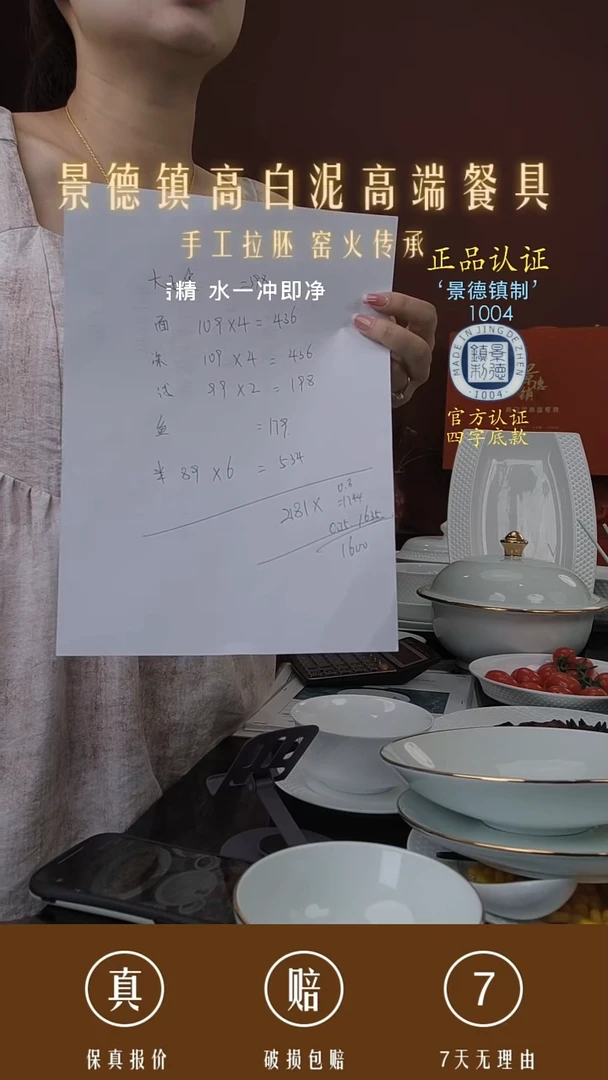 景德镇高白泥高端餐具
手工拉胚 窑火传承
正品认证
‘景德镇制’
1004
洁精 水一冲即净
MADE IN JINGDEZHEN
鎮景
制德
·1004·
官方认证
四字底款
大
面 109×4=436
109×4=436
99×2=198
鱼 =179
米 89×6=534
2181×
0.8
1600
真
赔
7
保真报价
破损包赔
7天无理由